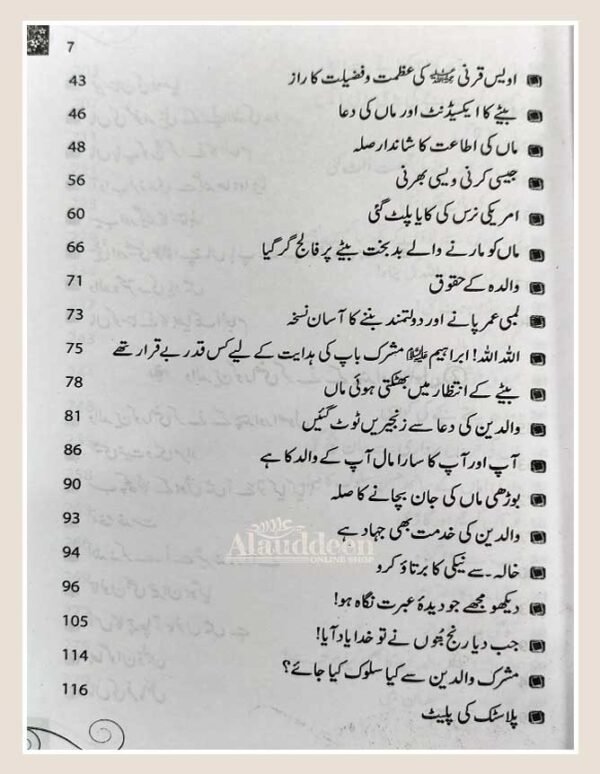 7
اویس قرنی کی عظمت و فضیلت کا راز 43
بیٹے کا ایکسیڈنٹ اور ماں کی دعا 46
ماں کی اطاعت کا شاندار صلہ 48
جیسی کرنی ویسی بھرنی 56
امریکی نرس کی کایا پلٹ گئی 60
ماں کو مارنے والے بد بخت بیٹے پر فالج گر گیا 66
والدہ کے حقوق 71
لمبی عمر پانے اور دولتمند بننے کا آسان نسخہ 73
اللہ اللہ! ابراہیم علیہ السلام مشرک باپ کی ہدایت کے لیے کس قدر بے قرار تھے 75
بیٹے کے انتظار میں بھٹکتی ہوئی ماں 78
والدین کی دعا سے زنجیریں ٹوٹ گئیں 81
آپ اور آپ کا سارا مال آپ کے والد کا ہے 86
بوڑھی ماں کی جان بچانے کا صلہ 90
والدین کی خدمت بھی جہاد ہے 93
علاءالدین
Alauddeen
ONLINE SHOP
خالہ سے نیکی کا برتاؤ کرو 94
دیکھو مجھے جو دیدۂ عبرت نگاہ ہو! 96
جب دیا رنج بُتوں نے تو خدا یاد آیا! 105
مشرک والدین سے کیا سلوک کیا جائے؟ 114
پلاسٹک کی پلیٹ 116